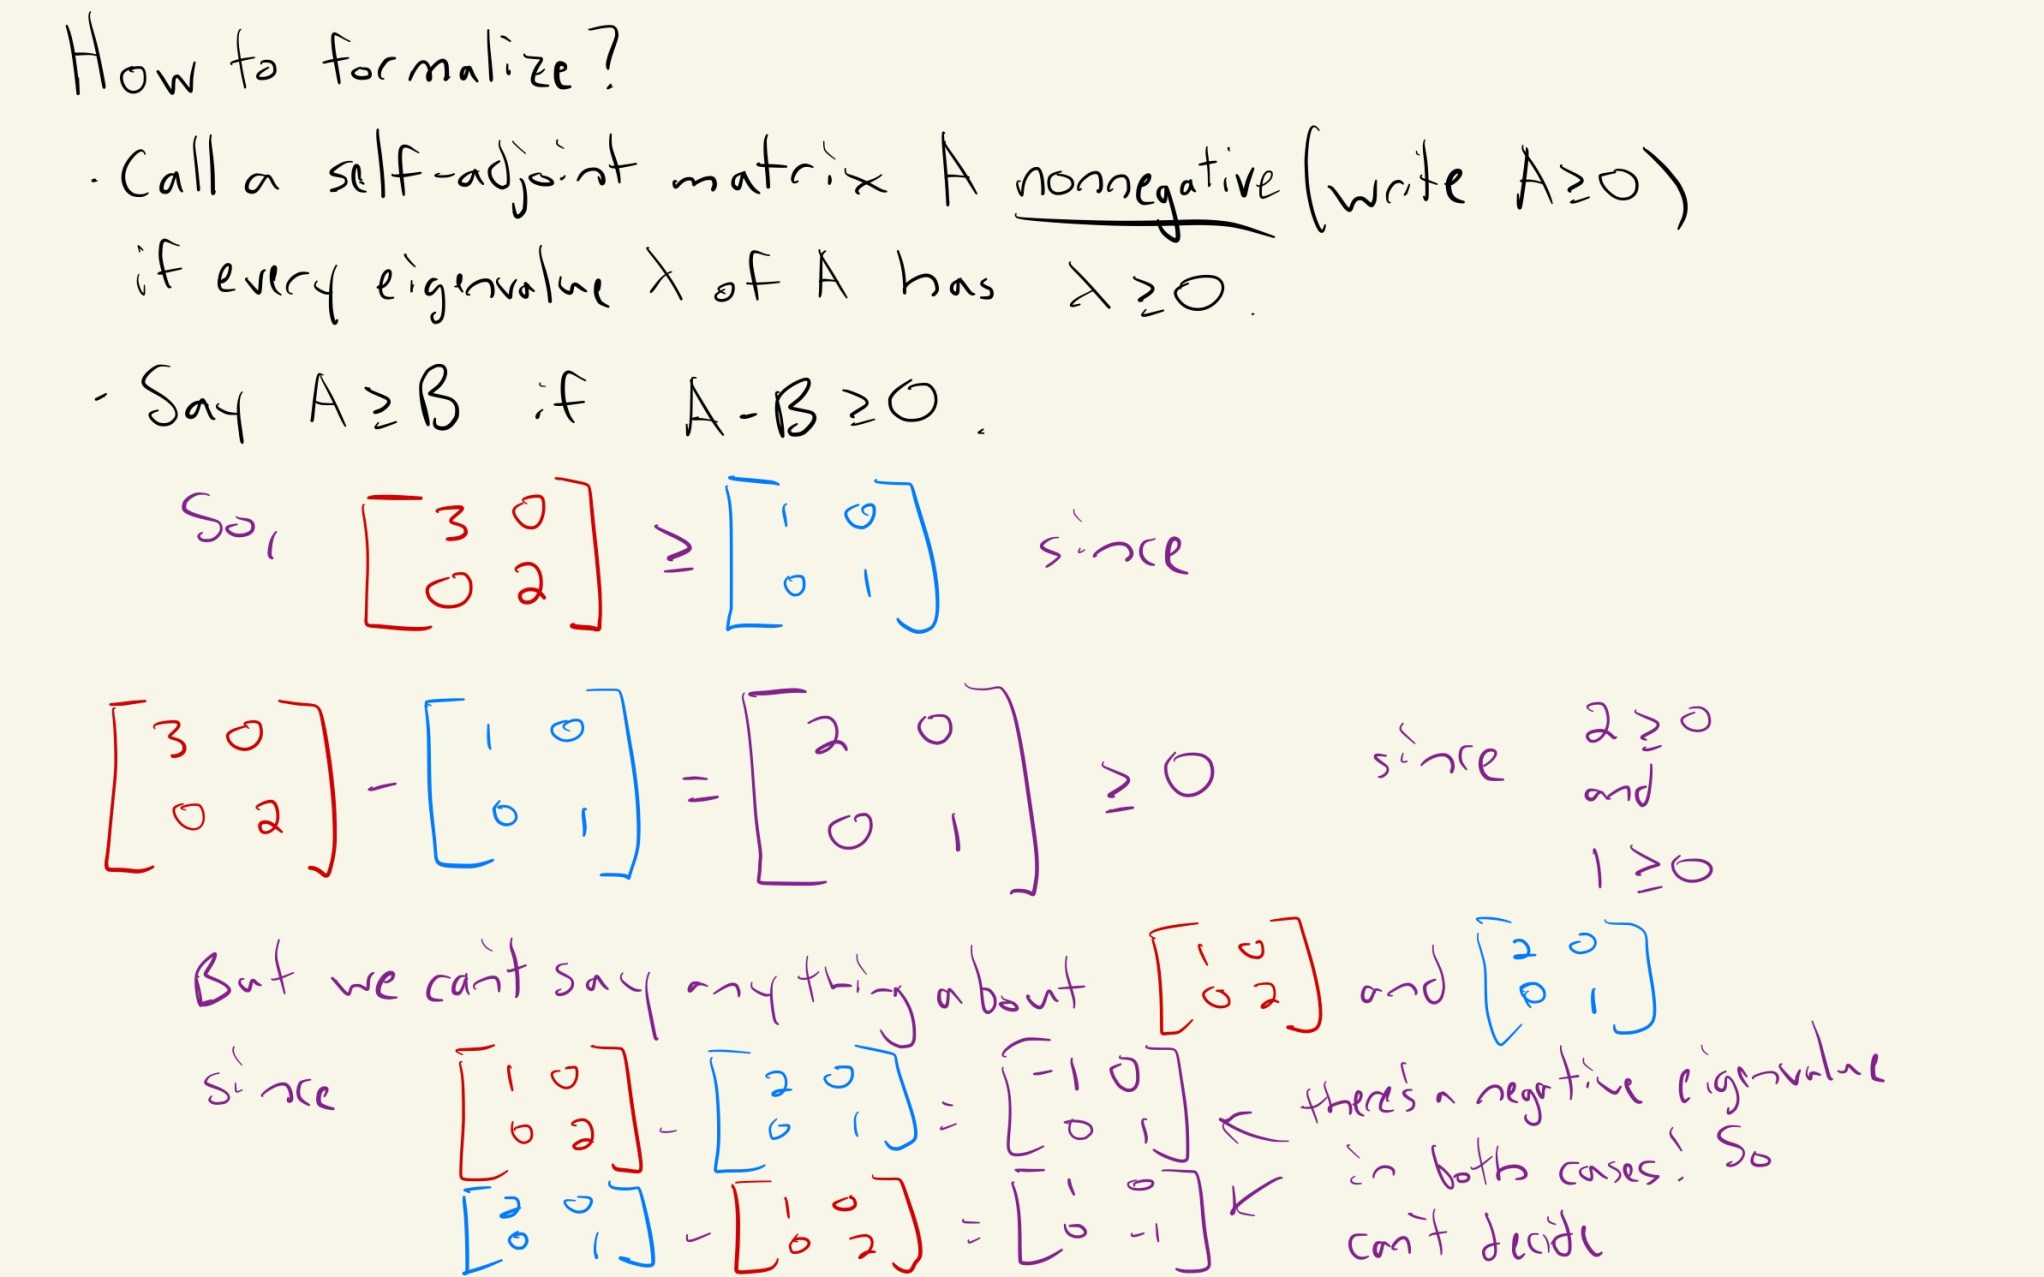 How to formalize?
· Call a self-adjoint matrix A nonnegative (write A≥0)
if every eigenvalue λ of A has λ≥0.
· Say A≥B if A-B≥0.
So, [3 0; 0 2] ≥ [1 0; 0 1] since
[3 0; 0 2] - [1 0; 0 1] = [2 0; 0 1] ≥ 0 since 2≥0 and 1≥0
But we can't say anything about [1 0; 0 2] and [2 0; 0 1]
since [1 0; 0 2] - [2 0; 0 1] = [-1 0; 0 1] ← there's a negative eigenvalue
in both cases! So
[2 0; 0 1] - [1 0; 0 2] = [1 0; 0 -1] ← can't decide